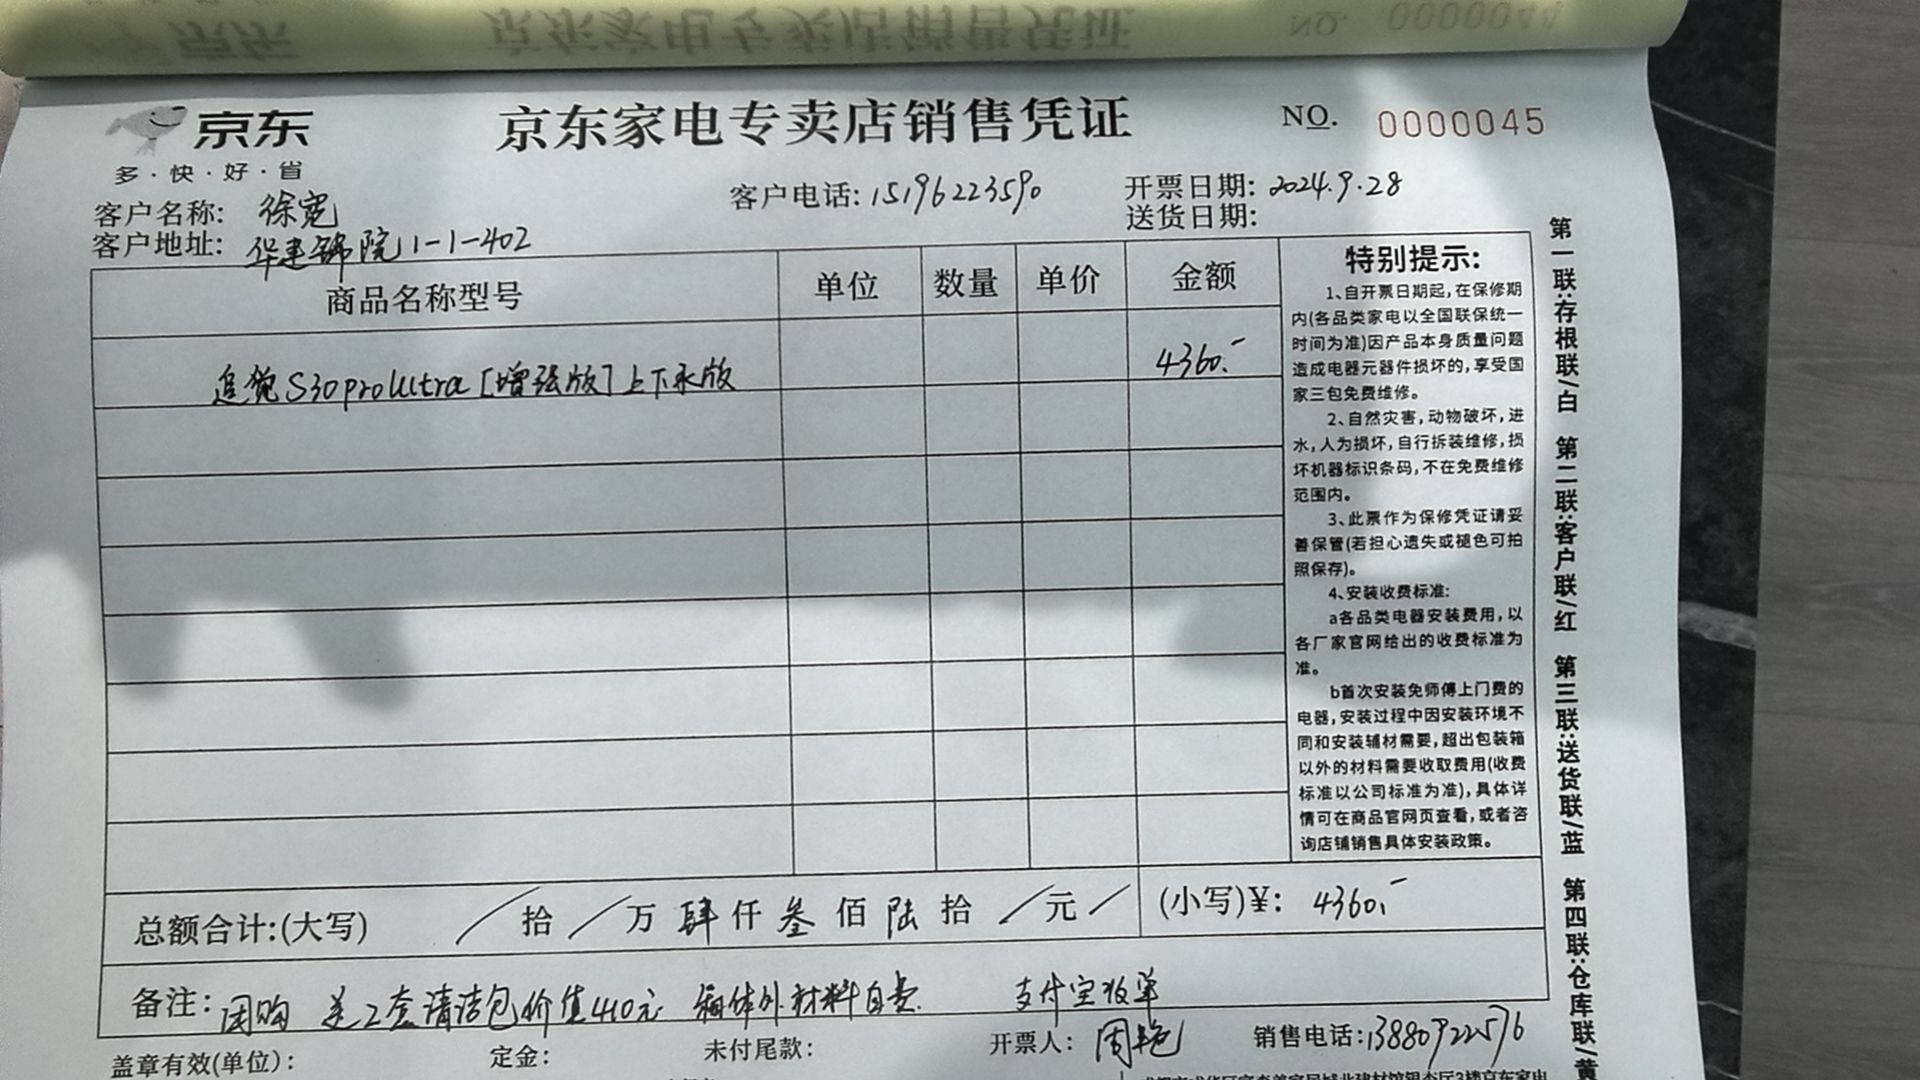 京东家电专卖店销售凭证 NO. 0000044
京东
多·快·好·省
京东家电专卖店销售凭证
NO. 0000045
客户名称: 徐宽
客户电话: 15196223590
开票日期: 2024.9.28
客户地址: 华建锦院11-1-402
送货日期:
商品名称型号 单位 数量 单价 金额
追觅S30proUltra[增强版]上下水版 4360.-
特别提示:
1、自开票日期起,在保修期
内(各品类家电以全国联保统一
时间为准)因产品本身质量问题
造成电器元器件损坏的,享受国
家三包免费维修。
2、自然灾害,动物破坏,进
水,人为损坏,自行拆装维修,损
坏机器标识条码,不在免费维修
范围内。
3、此票作为保修凭证请妥
善保管(若担心遗失或褪色可拍
照保存)。
4、安装收费标准:
a各品类电器安装费用,以
各厂家官网给出的收费标准为
准。
b首次安装免师傅上门费的
电器,安装过程中因安装环境不
同和安装辅材需要,超出包装箱
以外的材料需要收取费用(收费
标准以公司标准为准),具体详
情可在商品官网页查看,或者咨
询店铺销售具体安装政策。
总额合计:(大写) / 拾 / 万 肆 仟 叁 佰 陆 拾 / 元 / (小写)¥: 4360.-
备注: 团购 送2套清洁包价值440元 箱体外材料自费. 支付宝收单
盖章有效(单位): 定金: 未付尾款: 开票人: 周艳 销售电话:13880922576
第一联:存根联/白 第二联:客户联/红 第三联:送货联/蓝 第四联:仓库联/黄